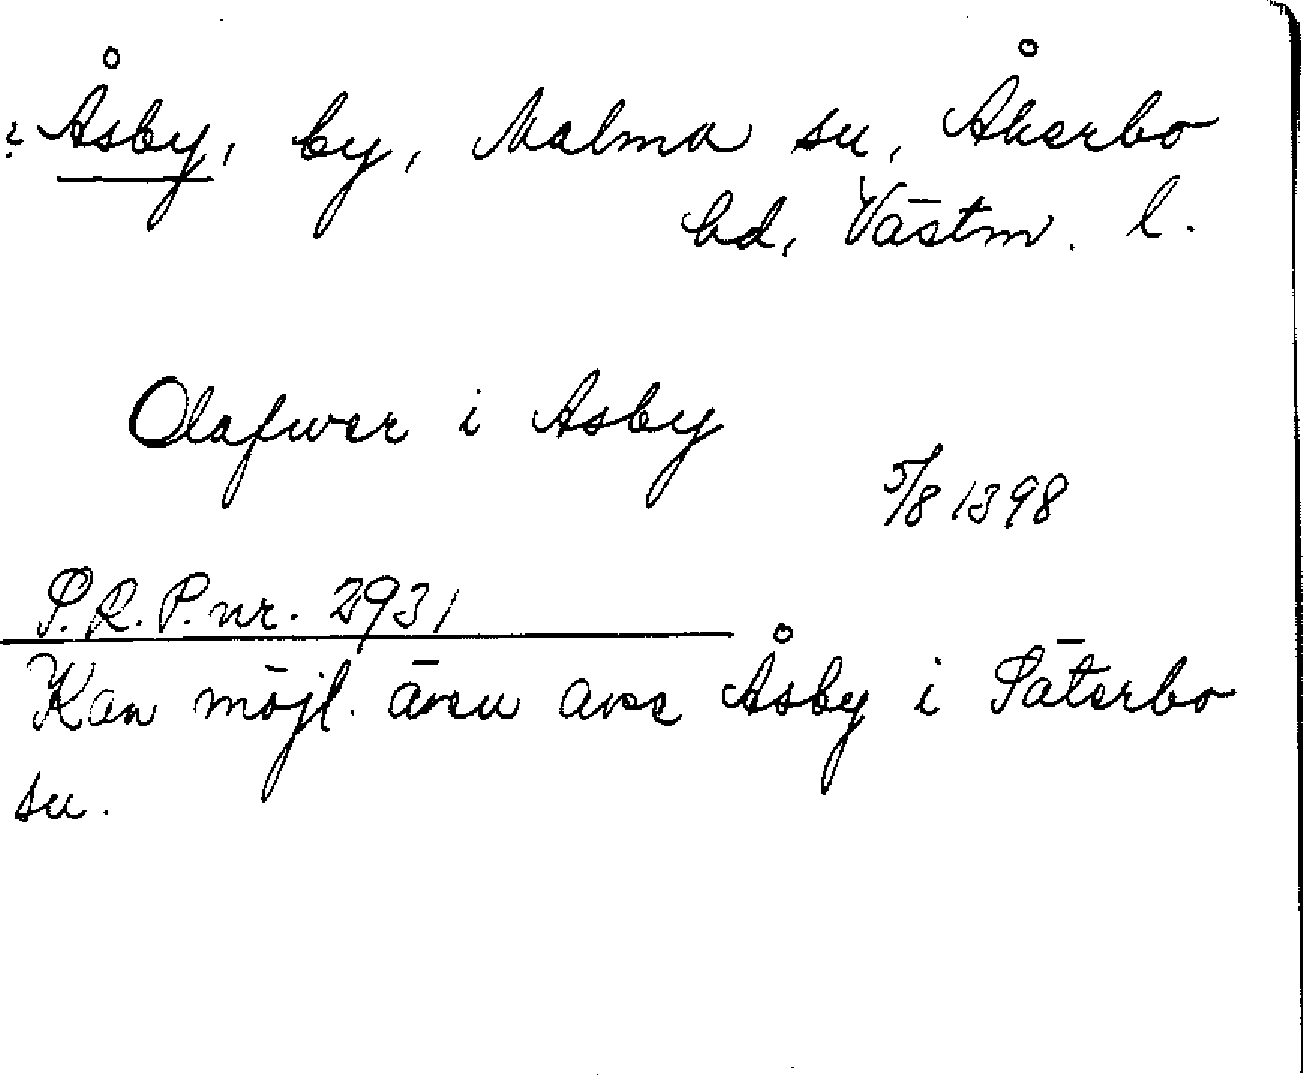 ? Åsby, by, Malma sn, Åkerbo
hd, Västm. l.
Olafwer i Asby
5/8 1398
S.R.P. nr. 2931
Kan möjl. även avse Åsby i Säterbo
sn.